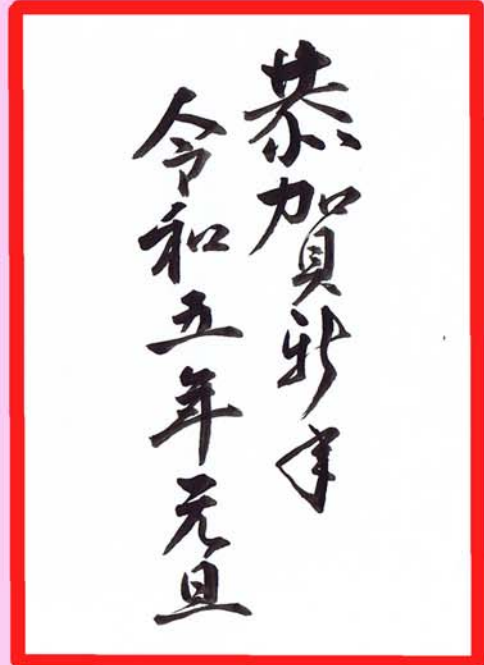 恭賀新年
令和五年元旦